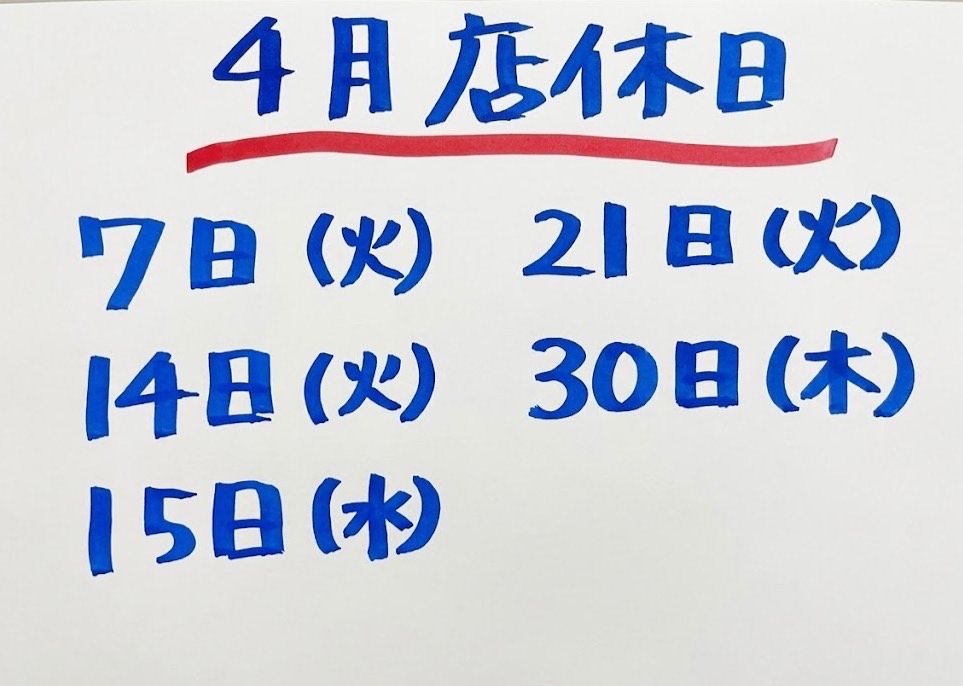 4月店休日
7日(火)
14日(火)
15日(水)
21日(火)
30日(木)